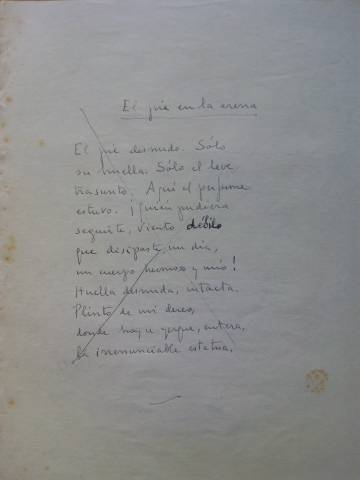 El pie en la arena
El pie desnudo. Sólo
su huella. Sólo el leve
trasunto. Aquí el perfume
estuvo. ¡Quién pudiera
seguirte, viento débilo
que disipaste, un día,
un cuerpo hermoso y mío!
Huella desnuda, intacta.
Plinto de mi deseo,
donde hoy se yergue, entera,
la irrenunciable estatua.